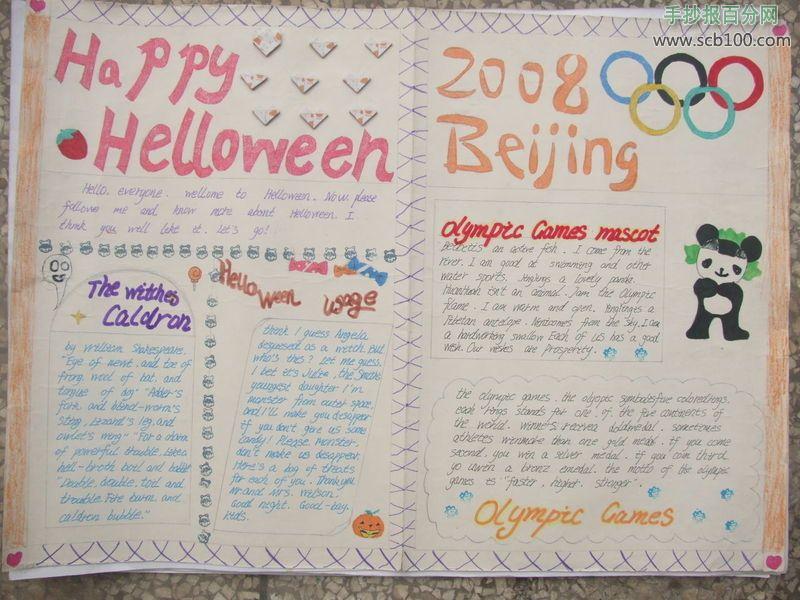 手抄报百分网
www.scb100.com
Happy
Helloween
Hello, everyone. wellome to Helloween. Now, please
followe me and know more about Helloween. I
think you well like it. Let's go!
The witches
Caldron
by William Shakespeare.
"Eye of newt, and toe of
frong, wool of bat, and
tongue of dog" "Adder's
fork, and blind-worm's
sting, Lizard's leg, and
owlet's wing" "For a charm
of powerful trouble, Like a
hell-broth boil and bubble"
"Double, double, toil and
trouble. Fire burn, and
caldron bubble."
Helloween
usage
think I guess Angela
disguesed as a witch. But
who's this? Let me guess.
I bet it's Julie, the Smith's
youngest daughter I'm
monster from outer space,
and I'll make you disappear
if you don't give us some
candy! Please, monster,
don't make us disappear.
Here's a bag of treats
for each of you. Thank you,
Mr and Mrs. Wilson.
Good night. Good-bay,
kids.
2008
Beijing
Olympic Games mascot
an active fish. I come from the
river. I am good at swimming and other
water sports. Jingjing's a lovely panda.
Huanhuan isn't an animal. I'am the Olympic
flame. I am warm and open. Yingying's a
Tibetan antelope. Nini comes from the Sky. I am
a hardworking swallow Each of us has a good
wish. Our wishes are prosperity.
the olympic games. the olypic symbol
each rings stands for one of the five continents of
the world. winners goldmedal. sometimes
athletes win more than one gold medal. if you come
second, you win a silver medal. if you com third
yo uwin a bronz emedal. the motto of the olympic
games is "faster, higher, stronger".
Olympic Games